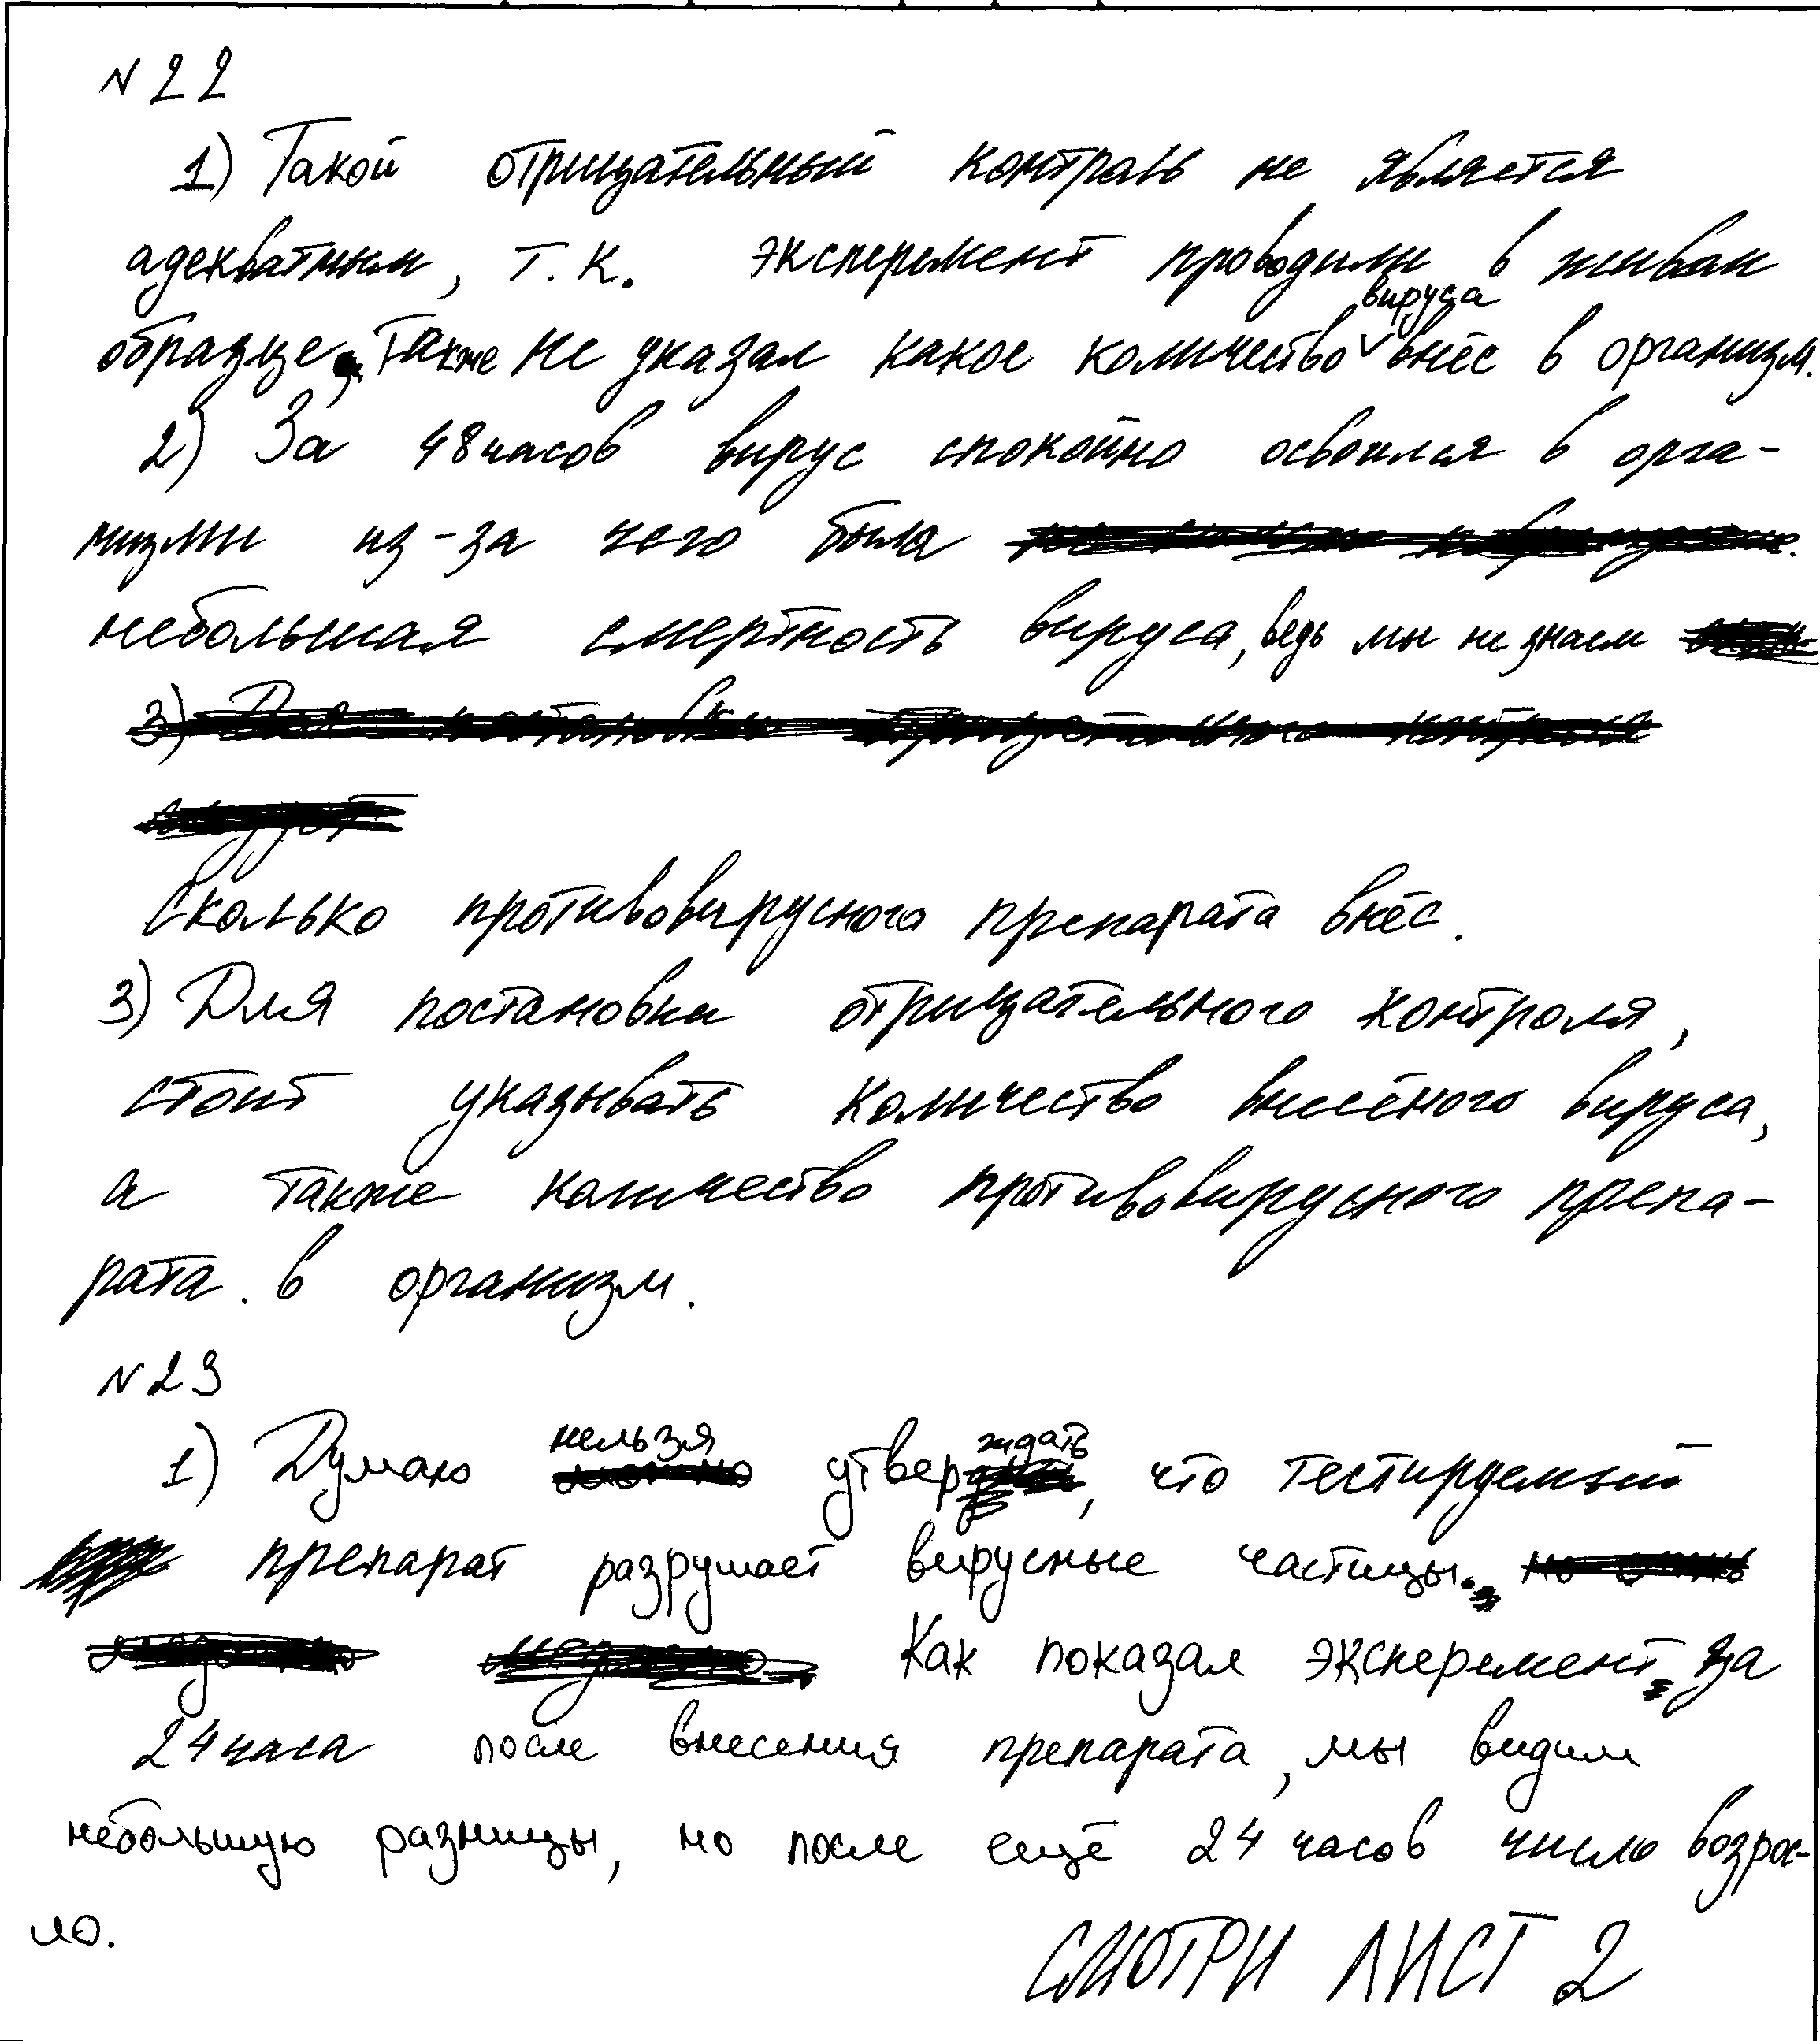 N 22
1) Такой отрицательный контроль не является
адекватным, т.к. эксперемент проводили в живом
образце, также не указал какое количество вируса внёс в организм.
2) За 48 часов вирус спокойно освоился в орга-
низмы из-за чего была
небольшая смертность вируса, ведь мы не знаем
3)
сколько противовирусного препарата внёс.
3) Для постановки отрицательного контроля,
стоит указывать количество внесёного вируса,
а также количество противовирусного препа-
рата. в организм.
N 23
1) Думаю нельзя утверждать, что тестируемый
препарат разрушает вирусные частицы.
Как показал эксперемент за
24 часа после внесения препарата, мы видим
небольшую разницы, но после ещё 24 часов число возрос-
ло.
СМОТРИ ЛИСТ 2